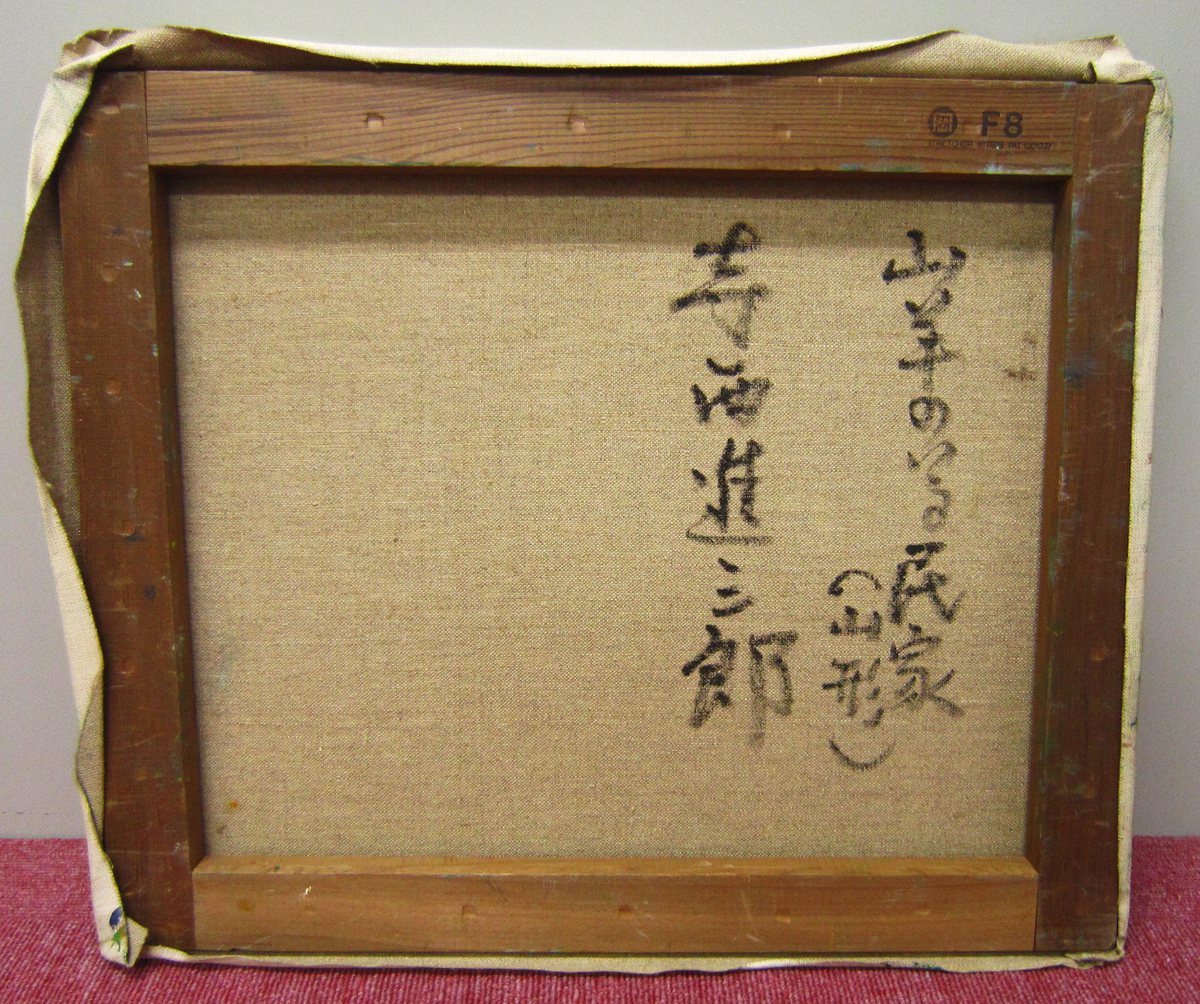 山羊のいる民家
(山形)
寺西進三郎
F8